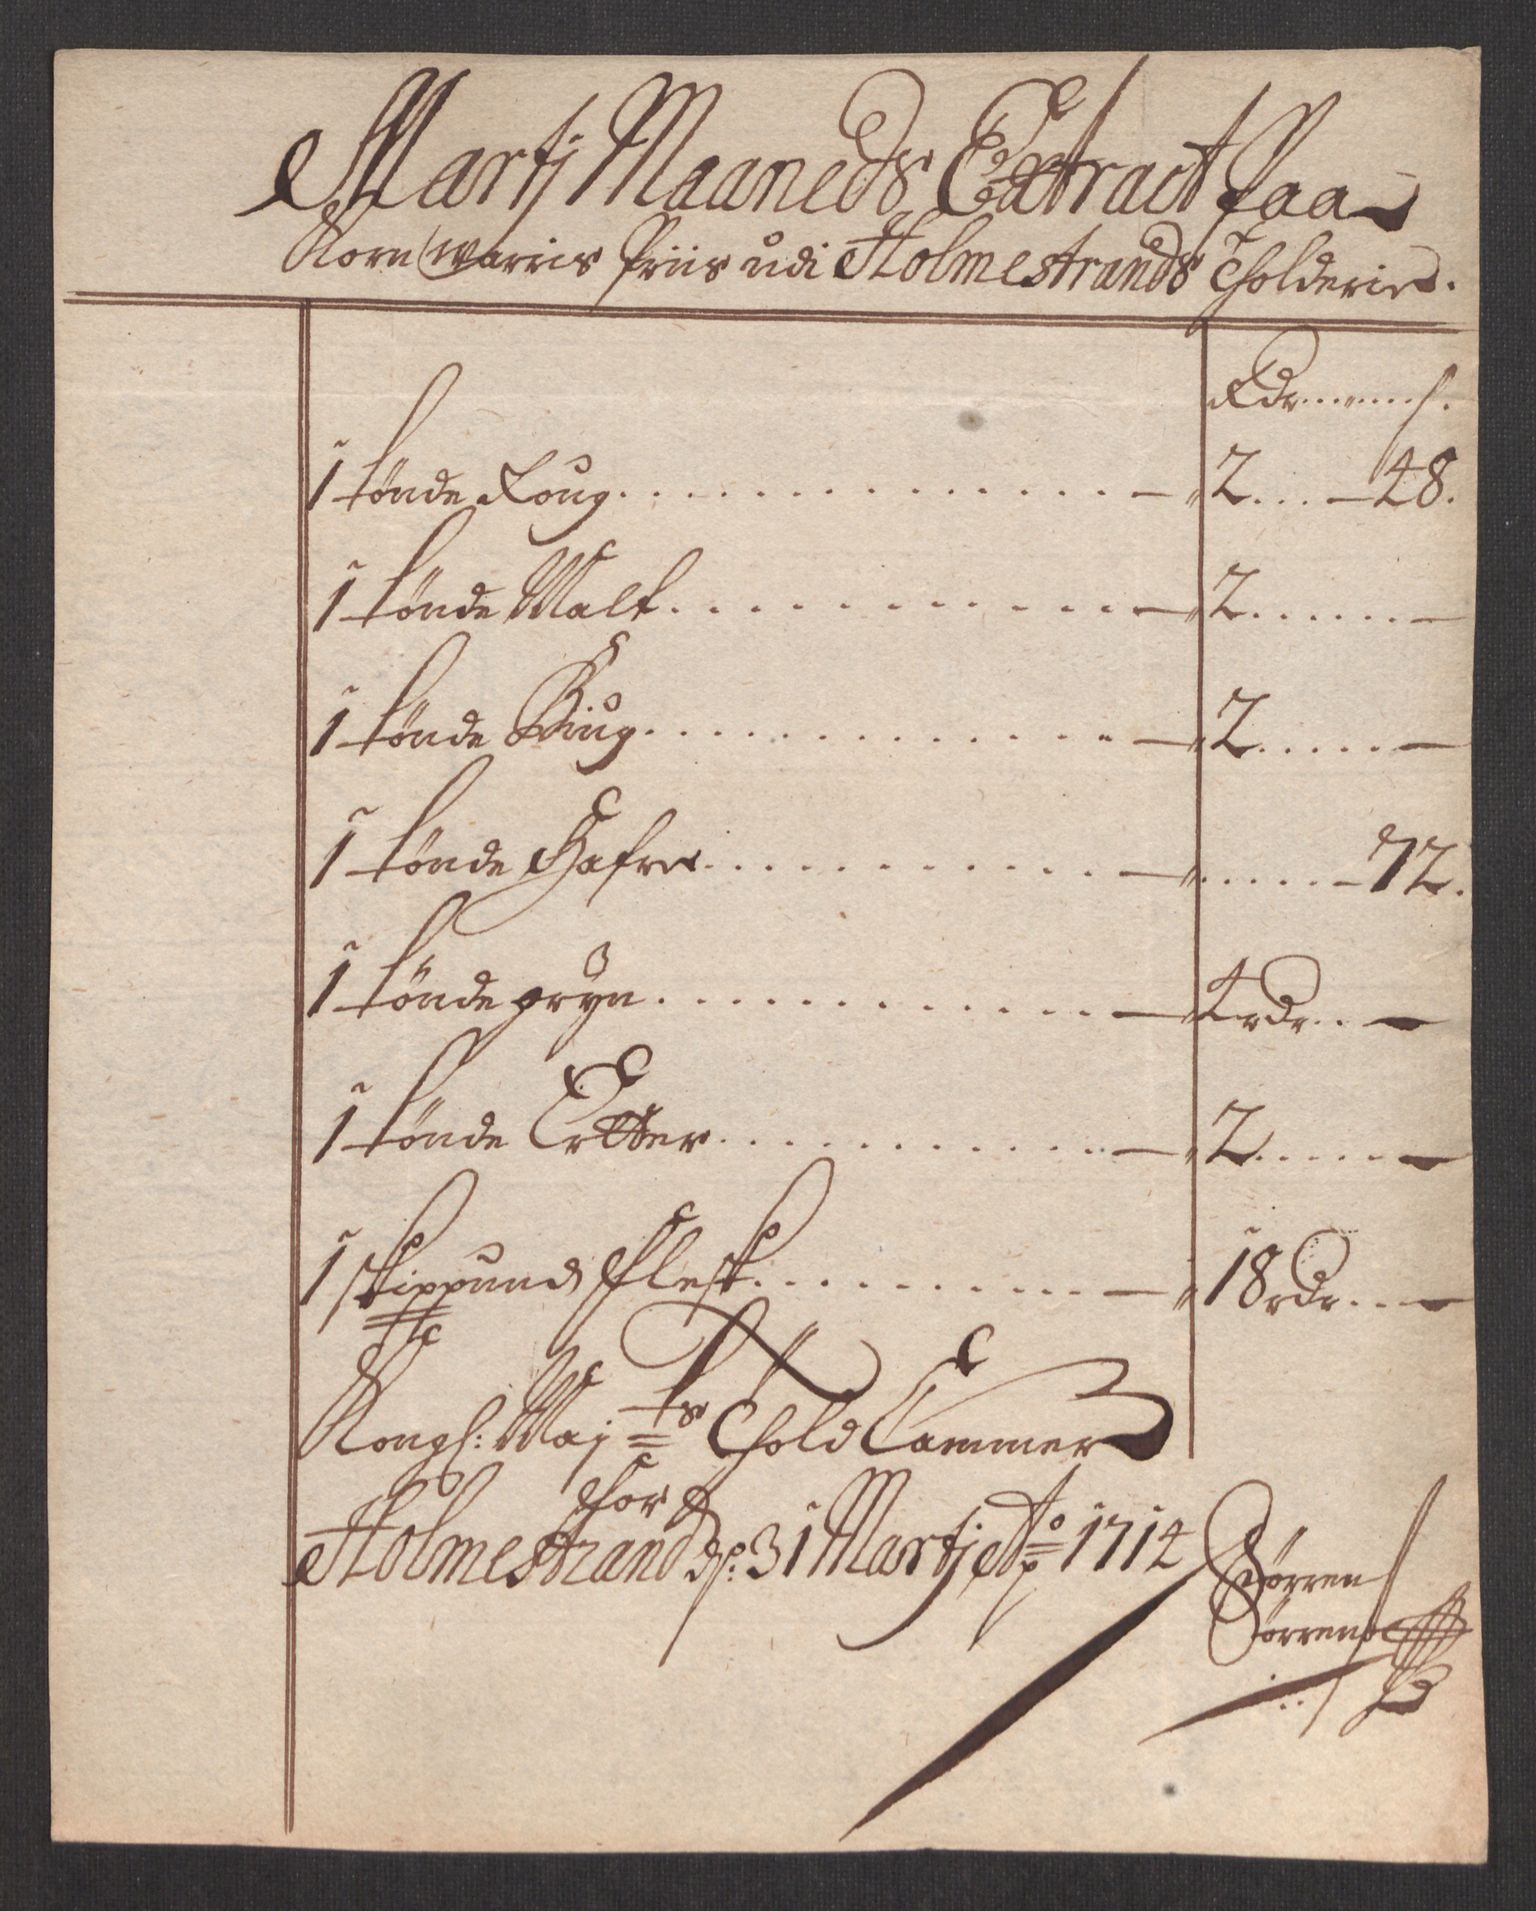 Martj Maaneds Extract paa
Korn Warris Priis udi Holmestrands Tholderie.
Rdr. s.
1 tönde Roug. 2. 48.
1 tönde Malt. 2.
1 tönde Biug. 2.
1 tönde Hafre. 72.
1 tönde gryn. 4 rdr.
1 tönde Ertter. 2.
1 skippund flesk. 18 rdr.
Kongl: Maj ts Thold Cammer
for
Holmestrand dn: 31 Martj Ao 1714
Sörren
Sörrens